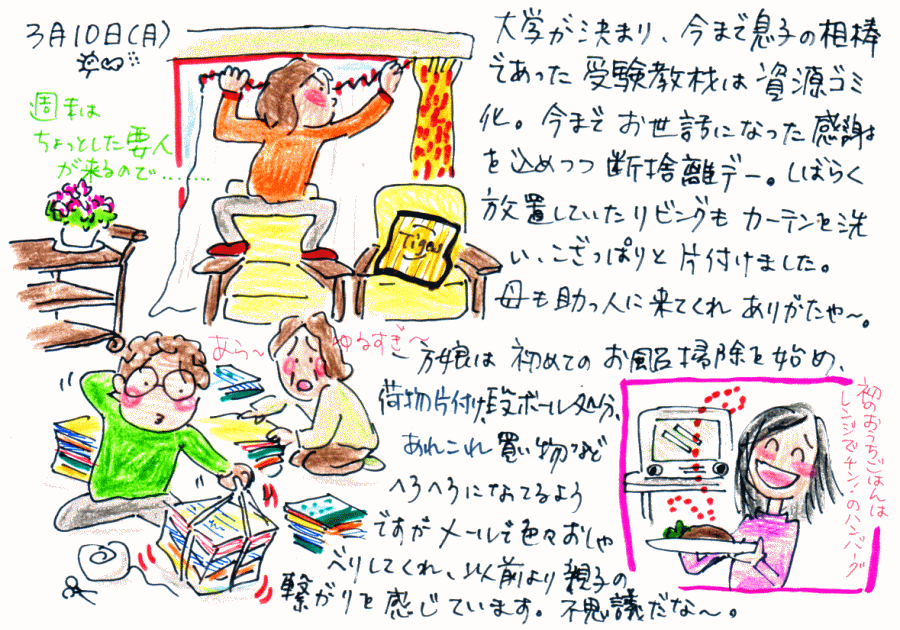 3月10日(月)
週末は
ちょっとした要人
が来るので………
大学が決まり、今まで息子の相棒
であった受験教材は資源ゴミ
化。今までお世話になった感謝
を込めつつ断捨離デー。しばらく
放置していたリビングもカーテンを洗
い、こざっぱりと片付けました。
母も助っ人に来てくれありがたや〜。
Tigers
あら〜
ゆるすぎ〜
一方娘は初めてのお風呂掃除を始め、
荷物片付け、段ボール処分、
あれこれ買い物など
へろへろになってるよう
ですがメールで色々おしゃ
べりしてくれ、以前より親子の
繋がりを感じています。不思議だな〜。
初のおうちごはんは
レンジでチン・のハンバーグ